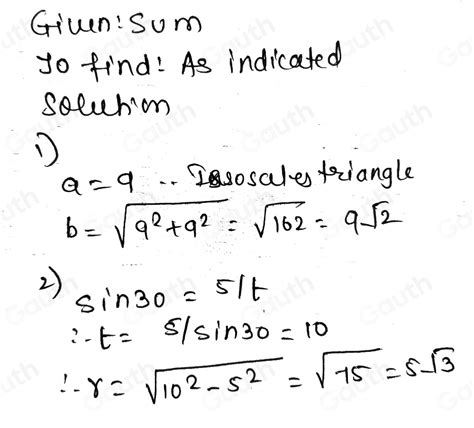 Given: Sum
To find: As indicated
Solution
1)
a = 9 .. Isosocales triangle
b = √(9²+9²) = √162 = 9√2
2)
sin30 = 5/t
∴ t = 5/sin30 = 10
∴ r = √(10² - 5²) = √75 = 5√3